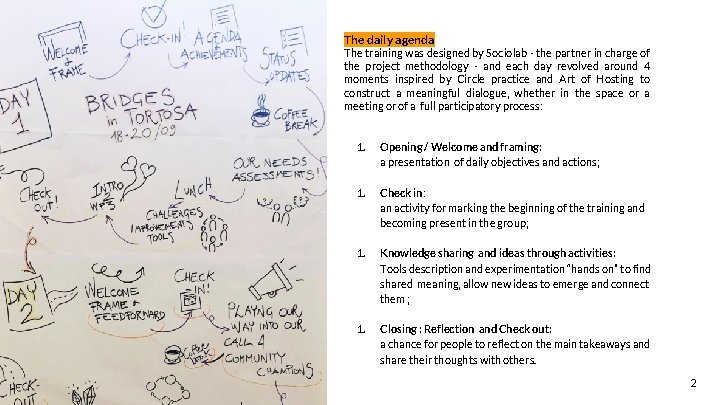 WELCOME
&
FRAME
CHECK-IN!
AGENDA
ACHIEVEMENTS
STATUS
UPDATES
DAY
1
BRIDGES
in TORTOSA
18-20/09
COFFEE
BREAK
OUR NEEDS
ASSESSMENTS!
LUNCH
CHALLENGES
IMPROVEMENTS
TOOLS
INTRO
2
WPS
CHECK
OUT!
DAY
2
WELCOME
FRAME &
FEEDFORWARD
CHECK
IN!
PLAYNG OUR
WAY INTO OUR
CALL 4
COMMUNITY
CHAMPIONS
CHECK-
OUT
The daily agenda
The training was designed by Sociolab - the partner in charge of
the project methodology - and each day revolved around 4
moments inspired by Circle practice and Art of Hosting to
construct a meaningful dialogue, whether in the space or a
meeting or of a full participatory process:
1. Opening / Welcome and framing:
a presentation of daily objectives and actions;
1. Check in:
an activity for marking the beginning of the training and
becoming present in the group;
1. Knowledge sharing and ideas through activities:
Tools description and experimentation “hands on” to find
shared meaning, allow new ideas to emerge and connect
them ;
1. Closing : Reflection and Check out:
a chance for people to reflect on the main takeaways and
share their thoughts with others.
2